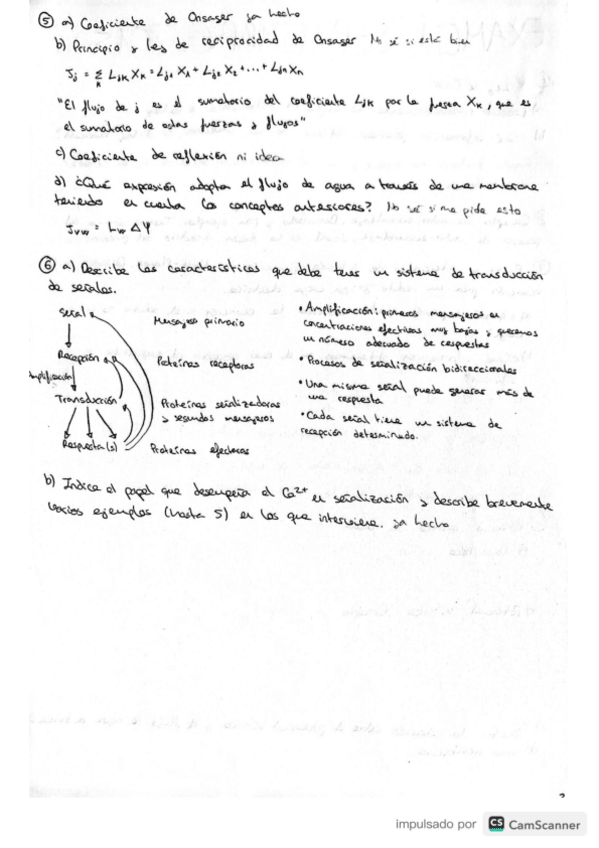 ⑤ a) Coeficiente de Onsager ya hecho
b) Principio y ley de reciprocidad de Onsager No sé si está bien
Jj = Σk Ljk Xk = Lj1 X1 + Lj2 X2 + ... + Ljn Xn
"El flujo de j es el sumatorio del coeficiente Ljk por la fuerza Xk, que es
el sumatorio de estas fuerzas y flujos"
c) Coeficiente de reflexión ni idea
d) ¿Qué expresión adopta el flujo de agua a través de una membrana
teniendo en cuenta los conceptos anteriores? No sé si me pide esto
Jvw = Lw ΔΨ
⑥ a) Describe las características que debe tener un sistema de transducción
de señales.
Señal
Mensajero primario
Recepción
Proteínas receptoras
Amplificación
Transducción
Proteínas señalizadoras
y segundos mensajeros
Respuesta(s)
Proteínas efectoras
• Amplificación: primeros mensajeros en
concentraciones efectivas muy bajas y queremos
un número adecuado de respuestas
• Procesos de señalización bidireccionales
• Una misma señal puede generar más de
una respuesta
• Cada señal tiene un sistema de
recepción determinado.
b) Indica el papel que desempeña el Ca2+ en señalización y describe brevemente
varios ejemplos (hasta 5) en los que interviene. ya hecho
impulsado por CS CamScanner